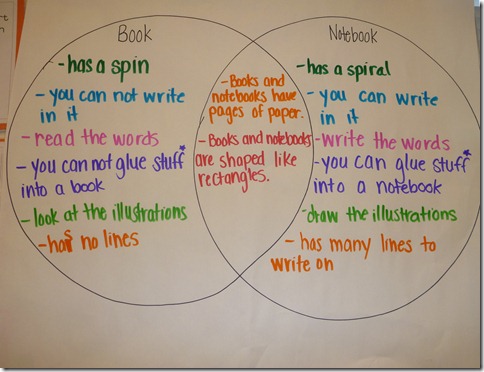 Book
- has a spin
- you can not write
in it
- read the words
- you can not glue stuff*
into a book
- look at the illustrations
- has no lines
- Books and
notebooks have
pages of paper.
- Books and notebooks
are shaped like
rectangles.
Notebook
- has a spiral
- you can write
in it
- write the words
- you can glue stuff*
into a notebook
- draw the illustrations
- has many lines to
write on